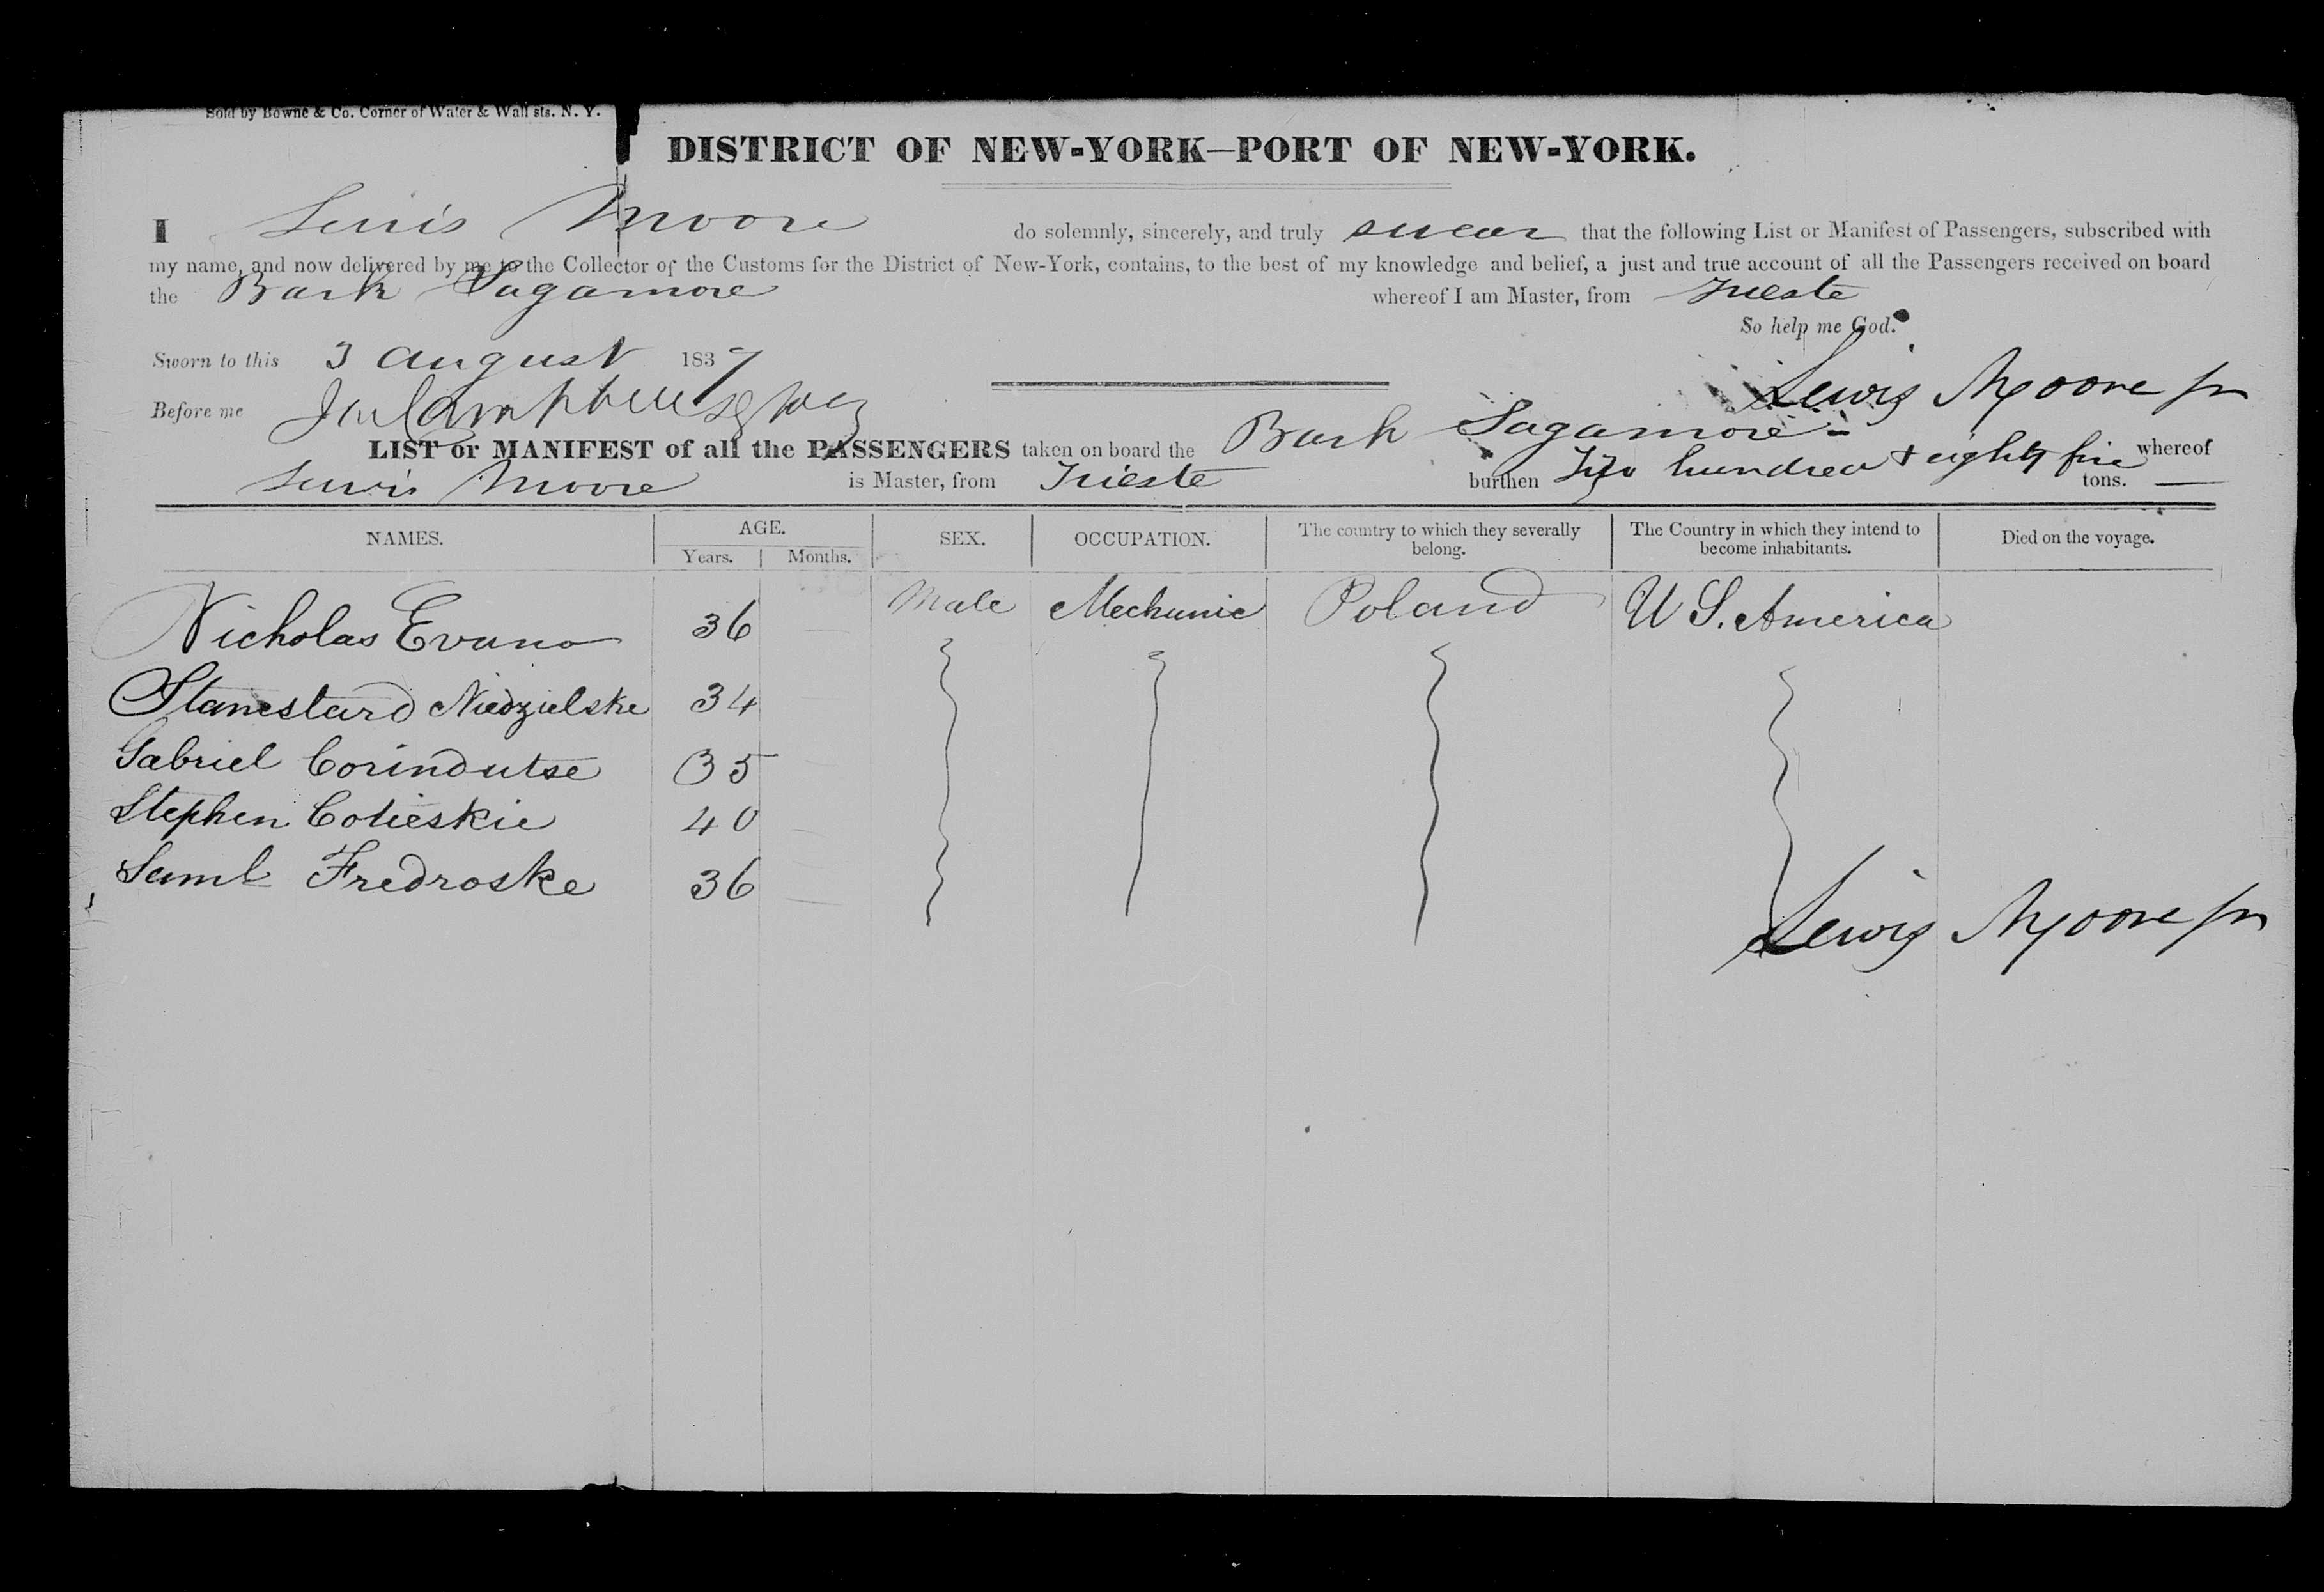 Sold by Bowne & Co. Corner of Water & Wall sts. N. Y.
DISTRICT OF NEW-YORK—PORT OF NEW-YORK.
I Lewis Moore do solemnly, sincerely, and truly swear that the following List or Manifest of Passengers, subscribed with
my name, and now delivered by me to the Collector of the Customs for the District of New-York, contains, to the best of my knowledge and belief, a just and true account of all the Passengers received on board
the Bark Sagamore whereof I am Master, from Trieste
So help me God.
Sworn to this 3 August 1837
Lewis Moore Jr
Before me
LIST or MANIFEST of all the PASSENGERS taken on board the Bark Sagamore whereof
Lewis Moore is Master, from Trieste burthen Two hundred & eighty five tons.
NAMES. AGE. SEX. OCCUPATION. The country to which they severally belong. The Country in which they intend to become inhabitants. Died on the voyage.
Years. Months.
Nicholas Evano 36 — Male Mechanic Poland U S. America
Stanestard Niedzielske 34
Gabriel Corindutse 35
Stephen Cotieskie 40
Saml Fredroske 36
Lewis Moore Jr